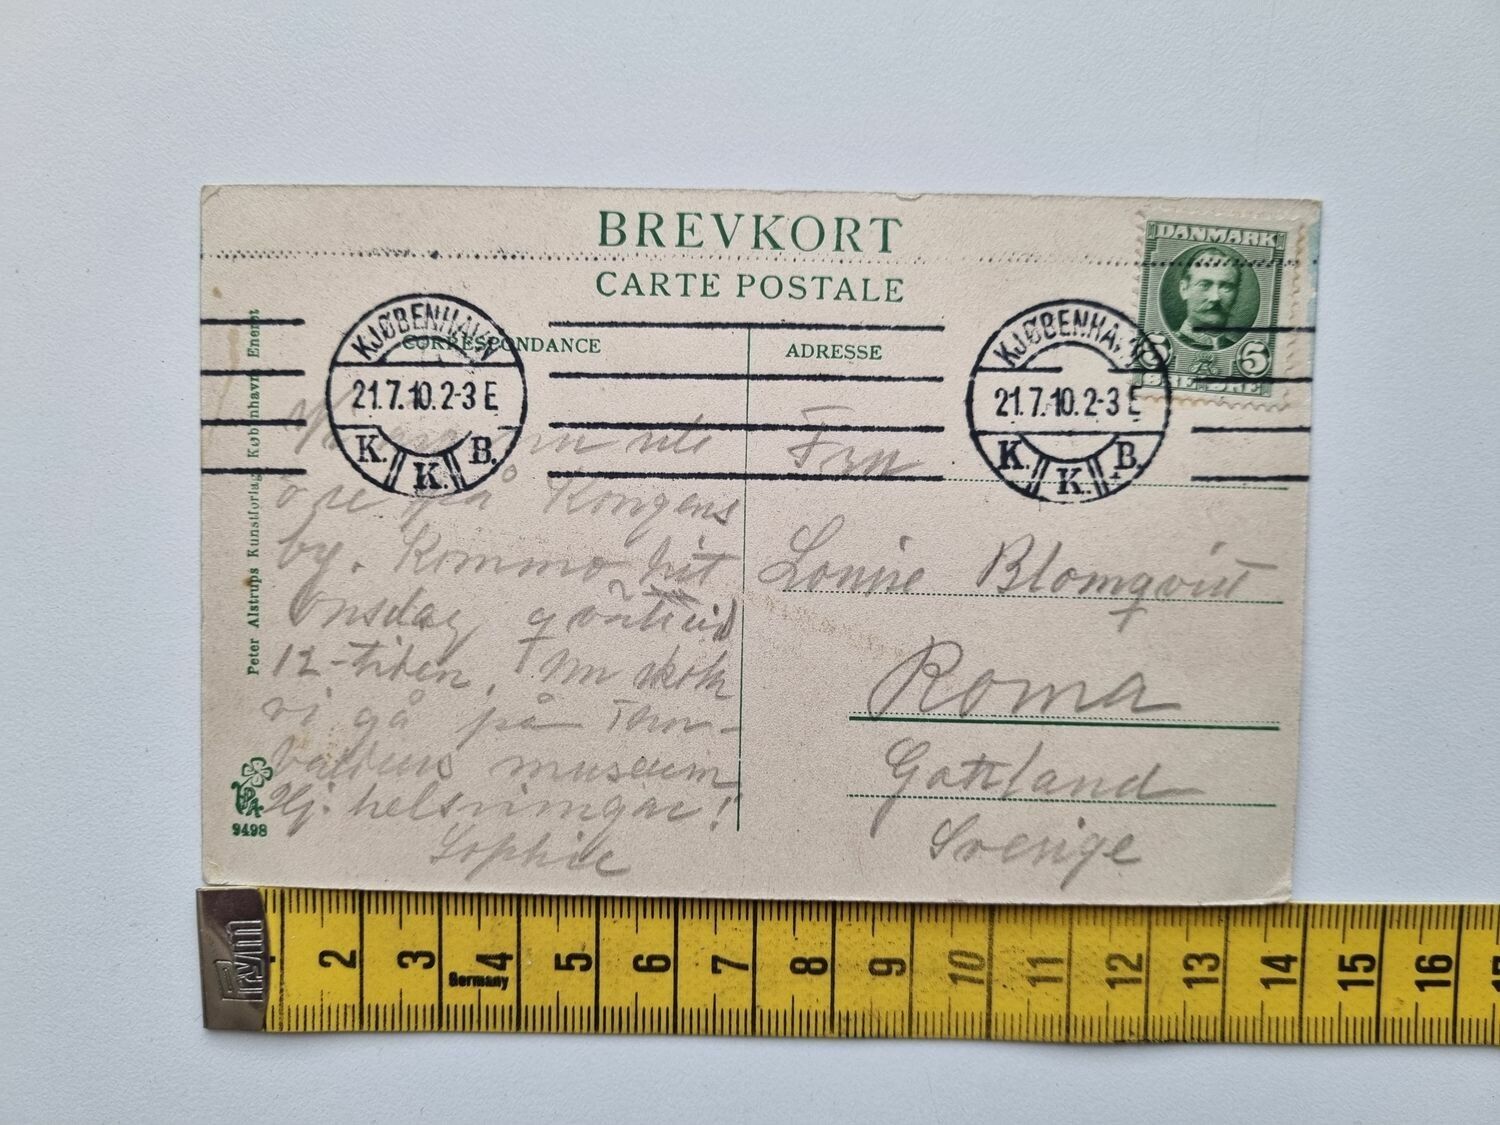 BREVKORT
CARTE POSTALE
CORRESPONDANCE
ADRESSE
DANMARK
5 5
ØRE ØRE
KJØBENHAVN
21.7.10.2-3 E
K. K. B.
KJØBENHAVN
21.7.10.2-3 E
K. K. B.
ute
på Kongens
by. Kommo hit
onsdag
12-tiden. Nu
vi gå på Thor-
museum
Hj. helsningar!
Sophie
Fru
Louise Blomqvist
Roma
Gottland
Sverige
Peter Alstrups Kunstforlag, Københavns Eneret
9498
Prym
2 3 4 5 6 7 8 9 10 11 12 13 14 15 16 17
Germany